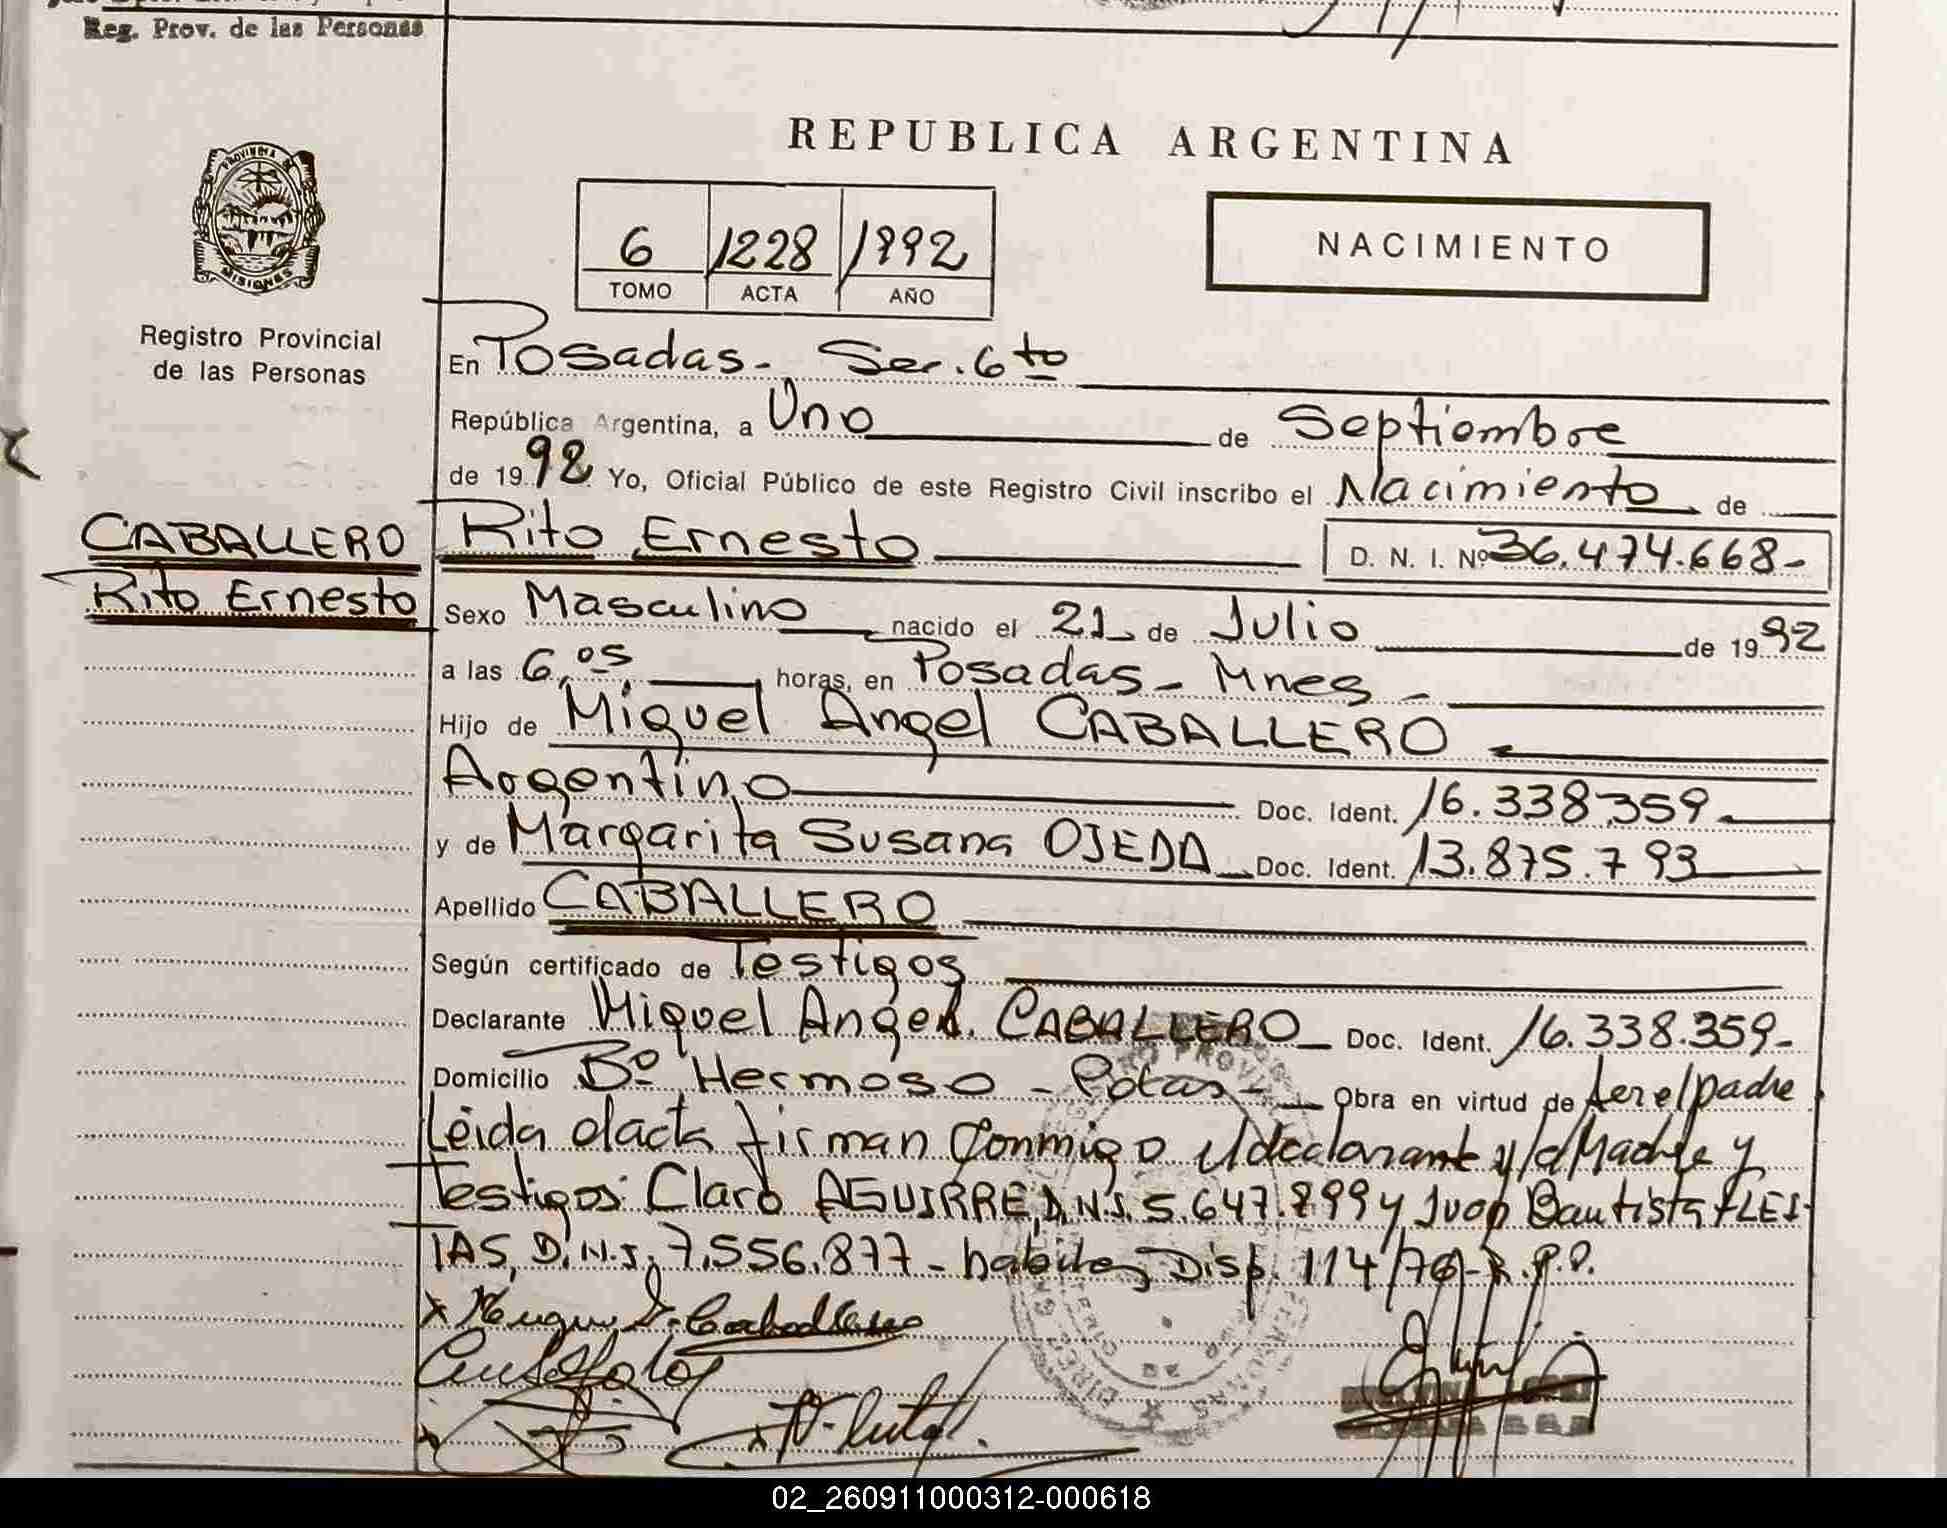 Reg. Prov. de las Personas
REPUBLICA ARGENTINA
PROVINCIA DE
MISIONES
6 1228 1992
TOMO ACTA AÑO
NACIMIENTO
Registro Provincial
de las Personas
En Posadas - Sec. 6to
República Argentina, a Uno de Septiembre
de 1992 Yo, Oficial Público de este Registro Civil inscribo el Nacimiento de
CABALLERO
Rito Ernesto
Rito Ernesto D. N. I. Nº 36.474.668-
Sexo Masculino nacido el 21 de Julio de 1992
a las 6,05 horas, en Posadas - Mnes -
Hijo de Miguel Angel CABALLERO
Argentino Doc. Ident. 16.338.359
y de Margarita Susana OJEDA Doc. Ident. 13.875.793
Apellido CABALLERO
Según certificado de Testigos
Declarante Miguel Angel CABALLERO Doc. Ident. 16.338.359-
Domicilio Bº Hermoso - Obra en virtud de ser el padre
Leida el acta firman conmigo el declarante y la Madre y
Testigos: Claro AGUIRRE, D.N.I. 5.647.899 y Juan Bautista FLEI-
TAS, D.N.I. 7.556.877 - Disp. 114/76 - R.P.P.
02_260911000312-000618